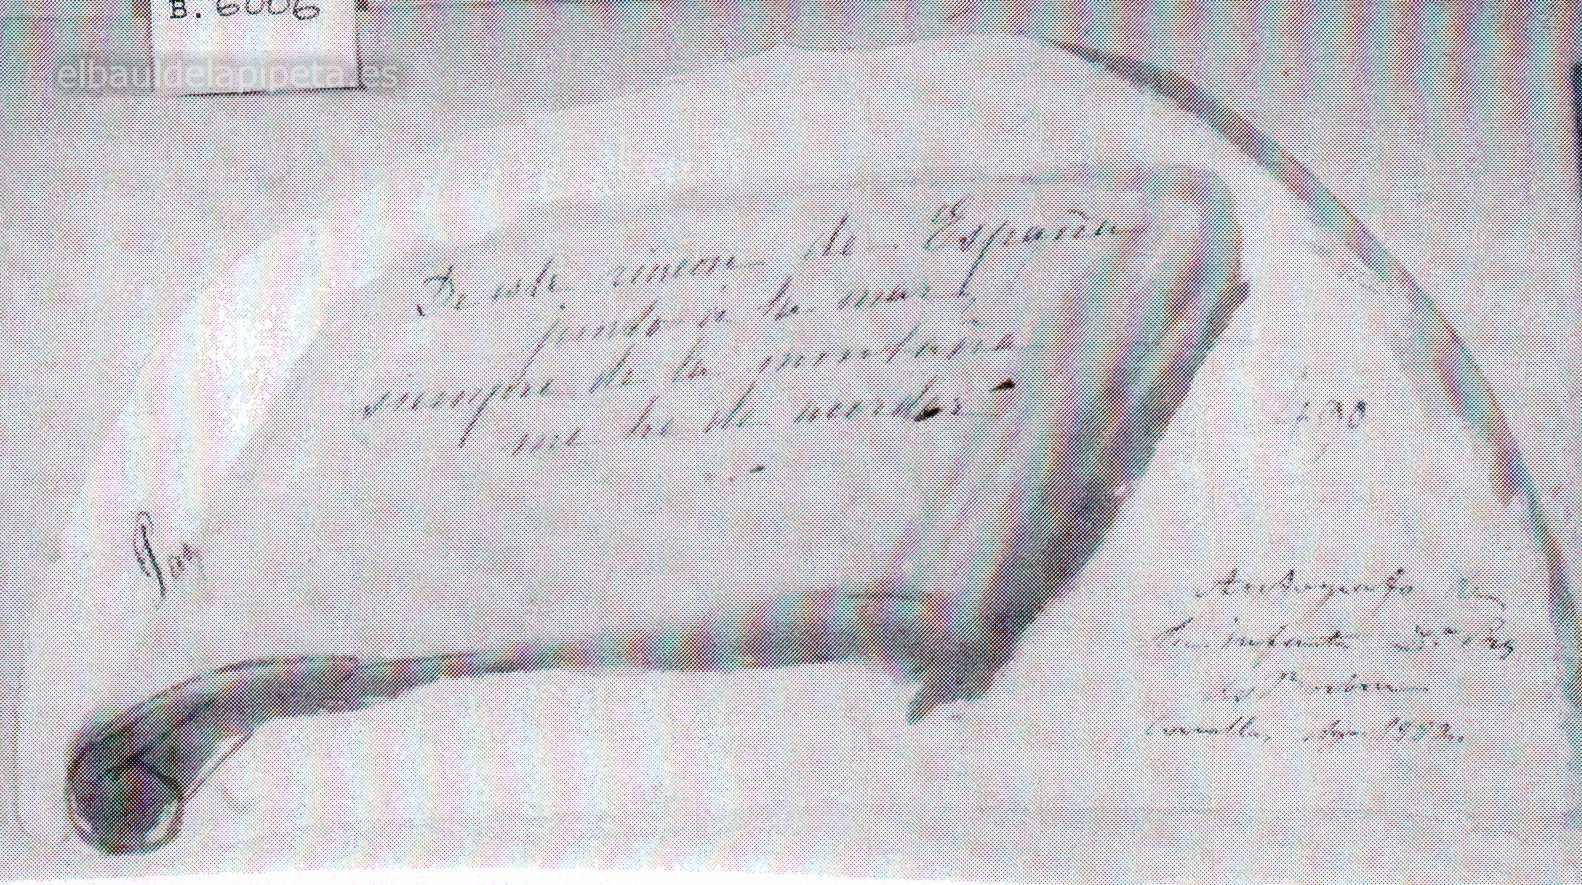 B. 6006
elbauldelapipeta.es
De este rincon de España
junto a la mar,
siempre de la montaña
me he de acordar
Paz
Autografo de
la infanta Dª Paz
de Borbon